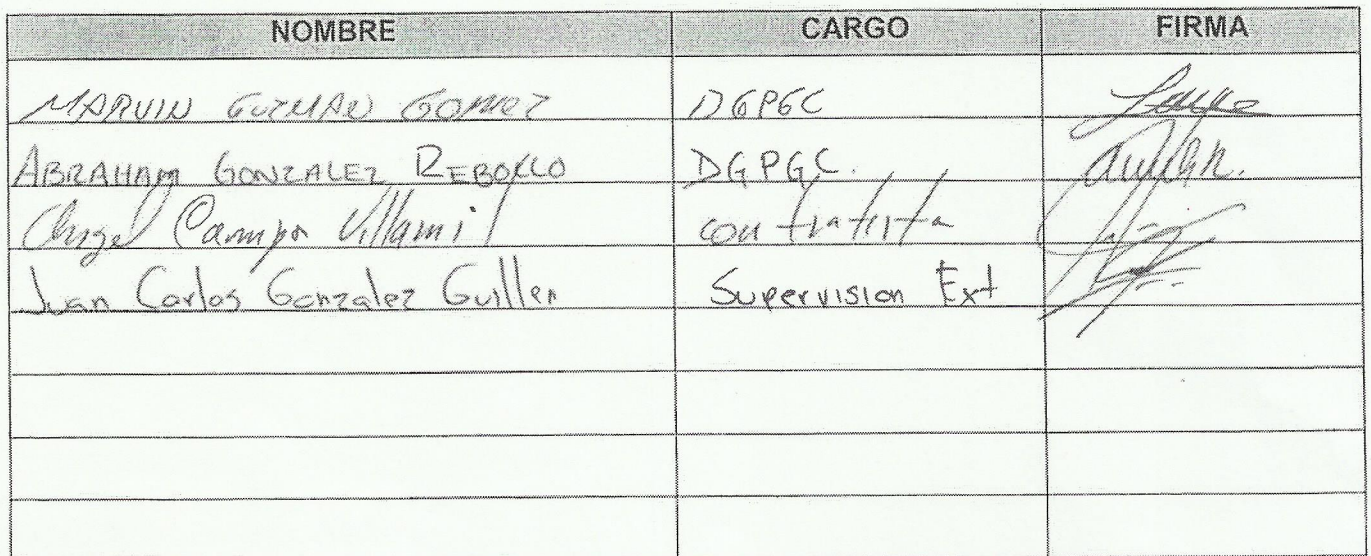 NOMBRE CARGO FIRMA
MARVIN GUZMAN GOMEZ DGPGC
ABRAHAM GONZALEZ REBOLLO DGPGC.
Angel Campos Villamil contratista
Juan Carlos Gonzalez Guillen Supervision Ext